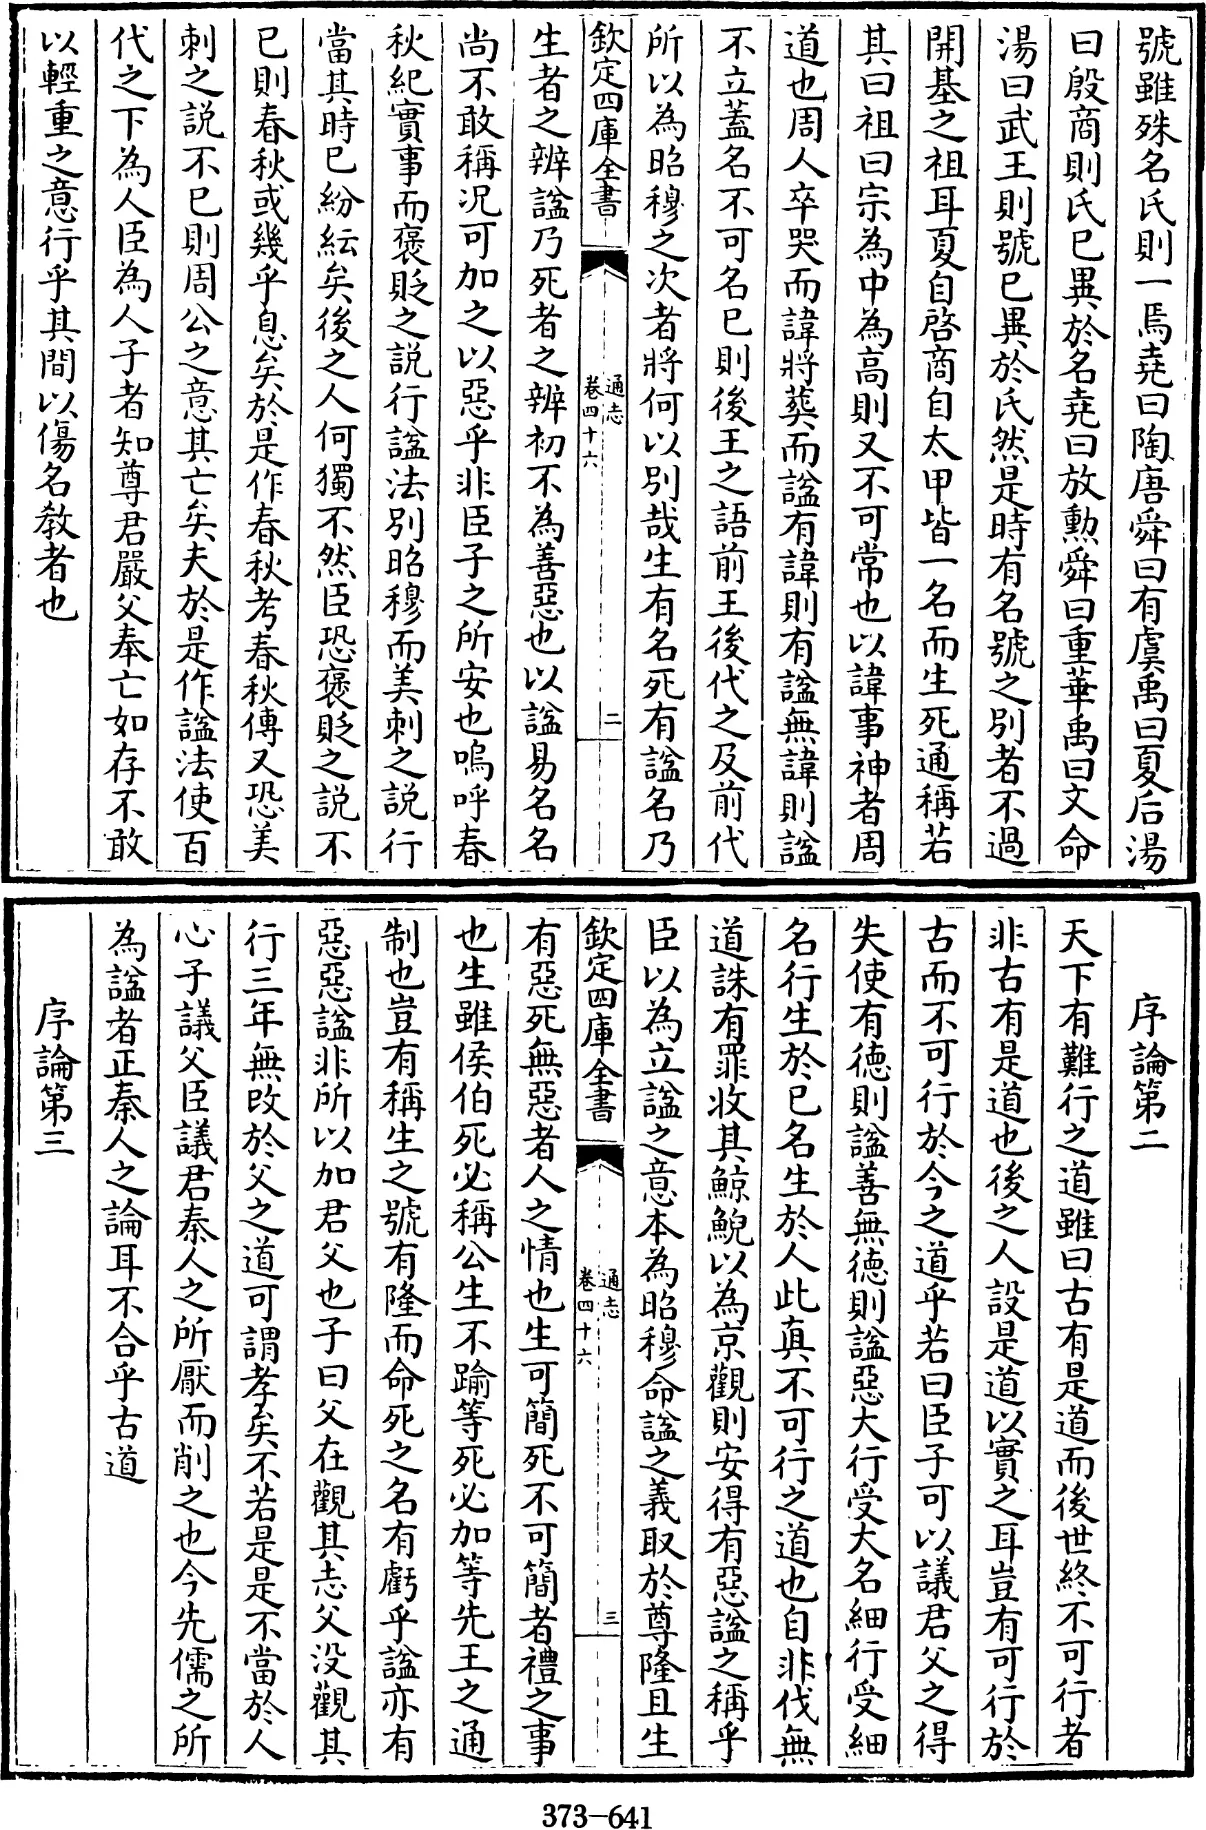 號雖殊名氏則一焉堯曰陶唐舜曰有虞禹曰夏后湯
曰殷商則氏已異於名堯曰放勳舜曰重華禹曰文命
湯曰武王則號已異於氏然是時有名號之別者不過
開基之祖耳夏自啓商自太甲皆一名而生死通稱若
其曰祖曰宗為中為高則又不可常也以諱事神者周
道也周人卒哭而諱將葬而諡有諱則有諡無諱則諡
不立蓋名不可名已則後王之語前王後代之及前代
所以為昭穆之次者將何以別哉生有名死有諡名乃
欽定四庫全書
通志
卷四十六
二
生者之辨諡乃死者之辨初不為善惡也以諡易名名
尚不敢稱況可加之以惡乎非臣子之所安也嗚呼春
秋紀實事而褒貶之説行諡法別昭穆而美刺之説行
當其時已紛紜矣後之人何獨不然臣恐褒貶之説不
已則春秋或幾乎息矣於是作春秋考春秋傳又恐美
刺之説不已則周公之意其亡矣夫於是作諡法使百
代之下為人臣為人子者知尊君嚴父奉亡如存不敢
以輕重之意行乎其間以傷名教者也
序論第二
天下有難行之道雖曰古有是道而後世終不可行者
非古有是道也後之人設是道以實之耳豈有可行於
古而不可行於今之道乎若曰臣子可以議君父之得
失使有德則諡善無德則諡惡大行受大名細行受細
名行生於己名生於人此真不可行之道也自非伐無
道誅有罪收其鯨鯢以為京觀則安得有惡諡之稱乎
臣以為立諡之意本為昭穆命諡之義取於尊隆且生
欽定四庫全書
通志
卷四十六
三
有惡死無惡者人之情也生可簡死不可簡者禮之事
也生雖侯伯死必稱公生不踰等死必加等先王之通
制也豈有稱生之號有隆而命死之名有虧乎諡亦有
惡惡諡非所以加君父也子曰父在觀其志父沒觀其
行三年無改於父之道可謂孝矣不若是是不當於人
心子議父臣議君秦人之所厭而削之也今先儒之所
為諡者正秦人之論耳不合乎古道
序論第三
373-641